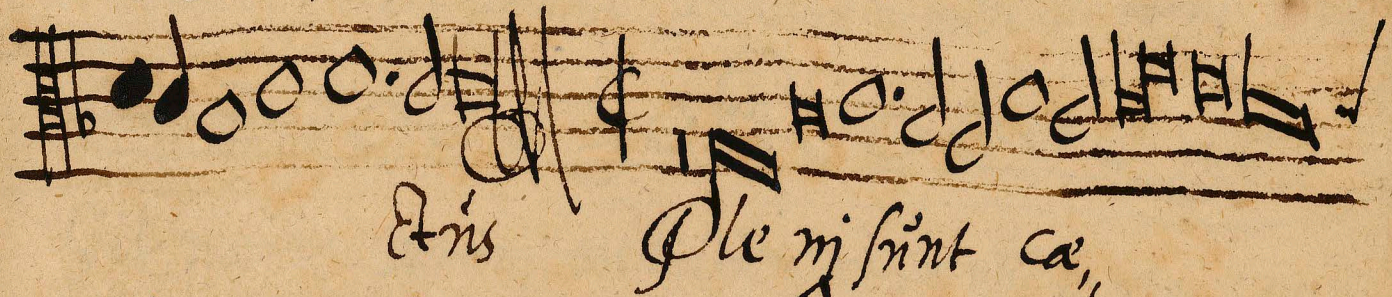 ctus Ple ni sunt cæ„